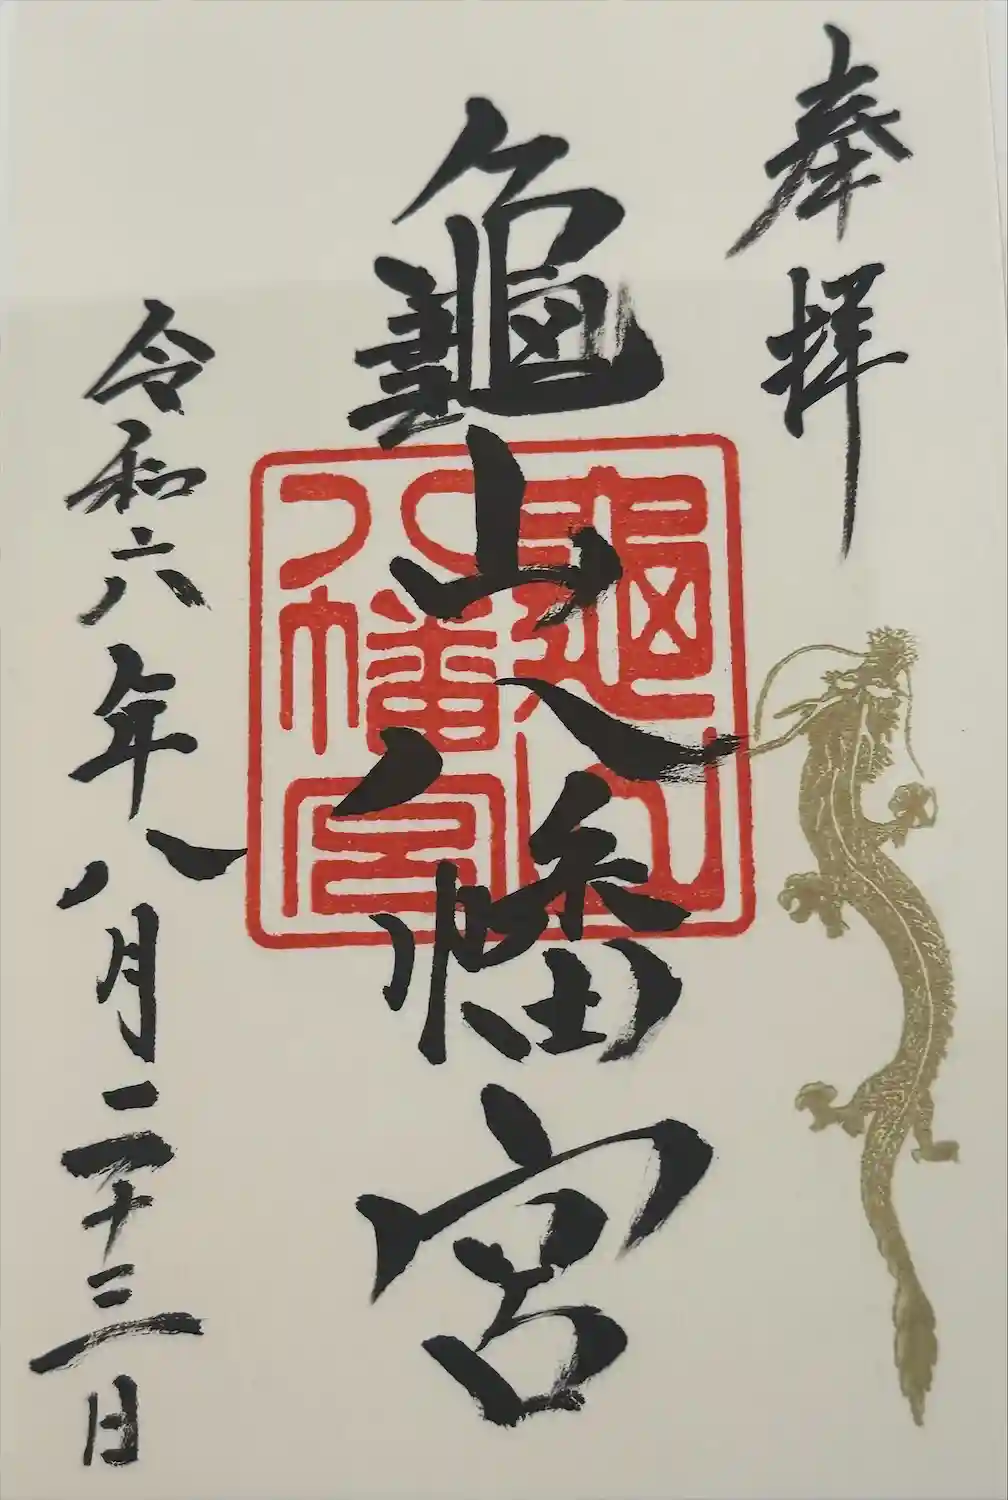 奉拝
龜山八幡宮
龜山八幡宮
令和六年八月二十三日